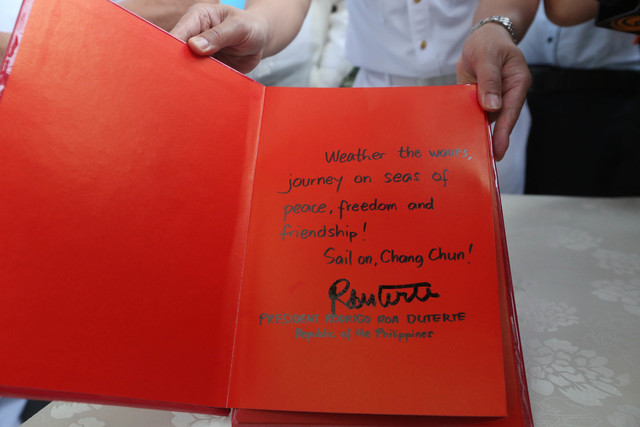 Weather the waves,
journey on seas of
peace, freedom and
friendship!
Sail on, Chang Chun!
PRESIDENT RODRIGO ROA DUTERTE
Republic of the Philippines